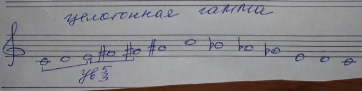 целотонная гамма
ув 5/3